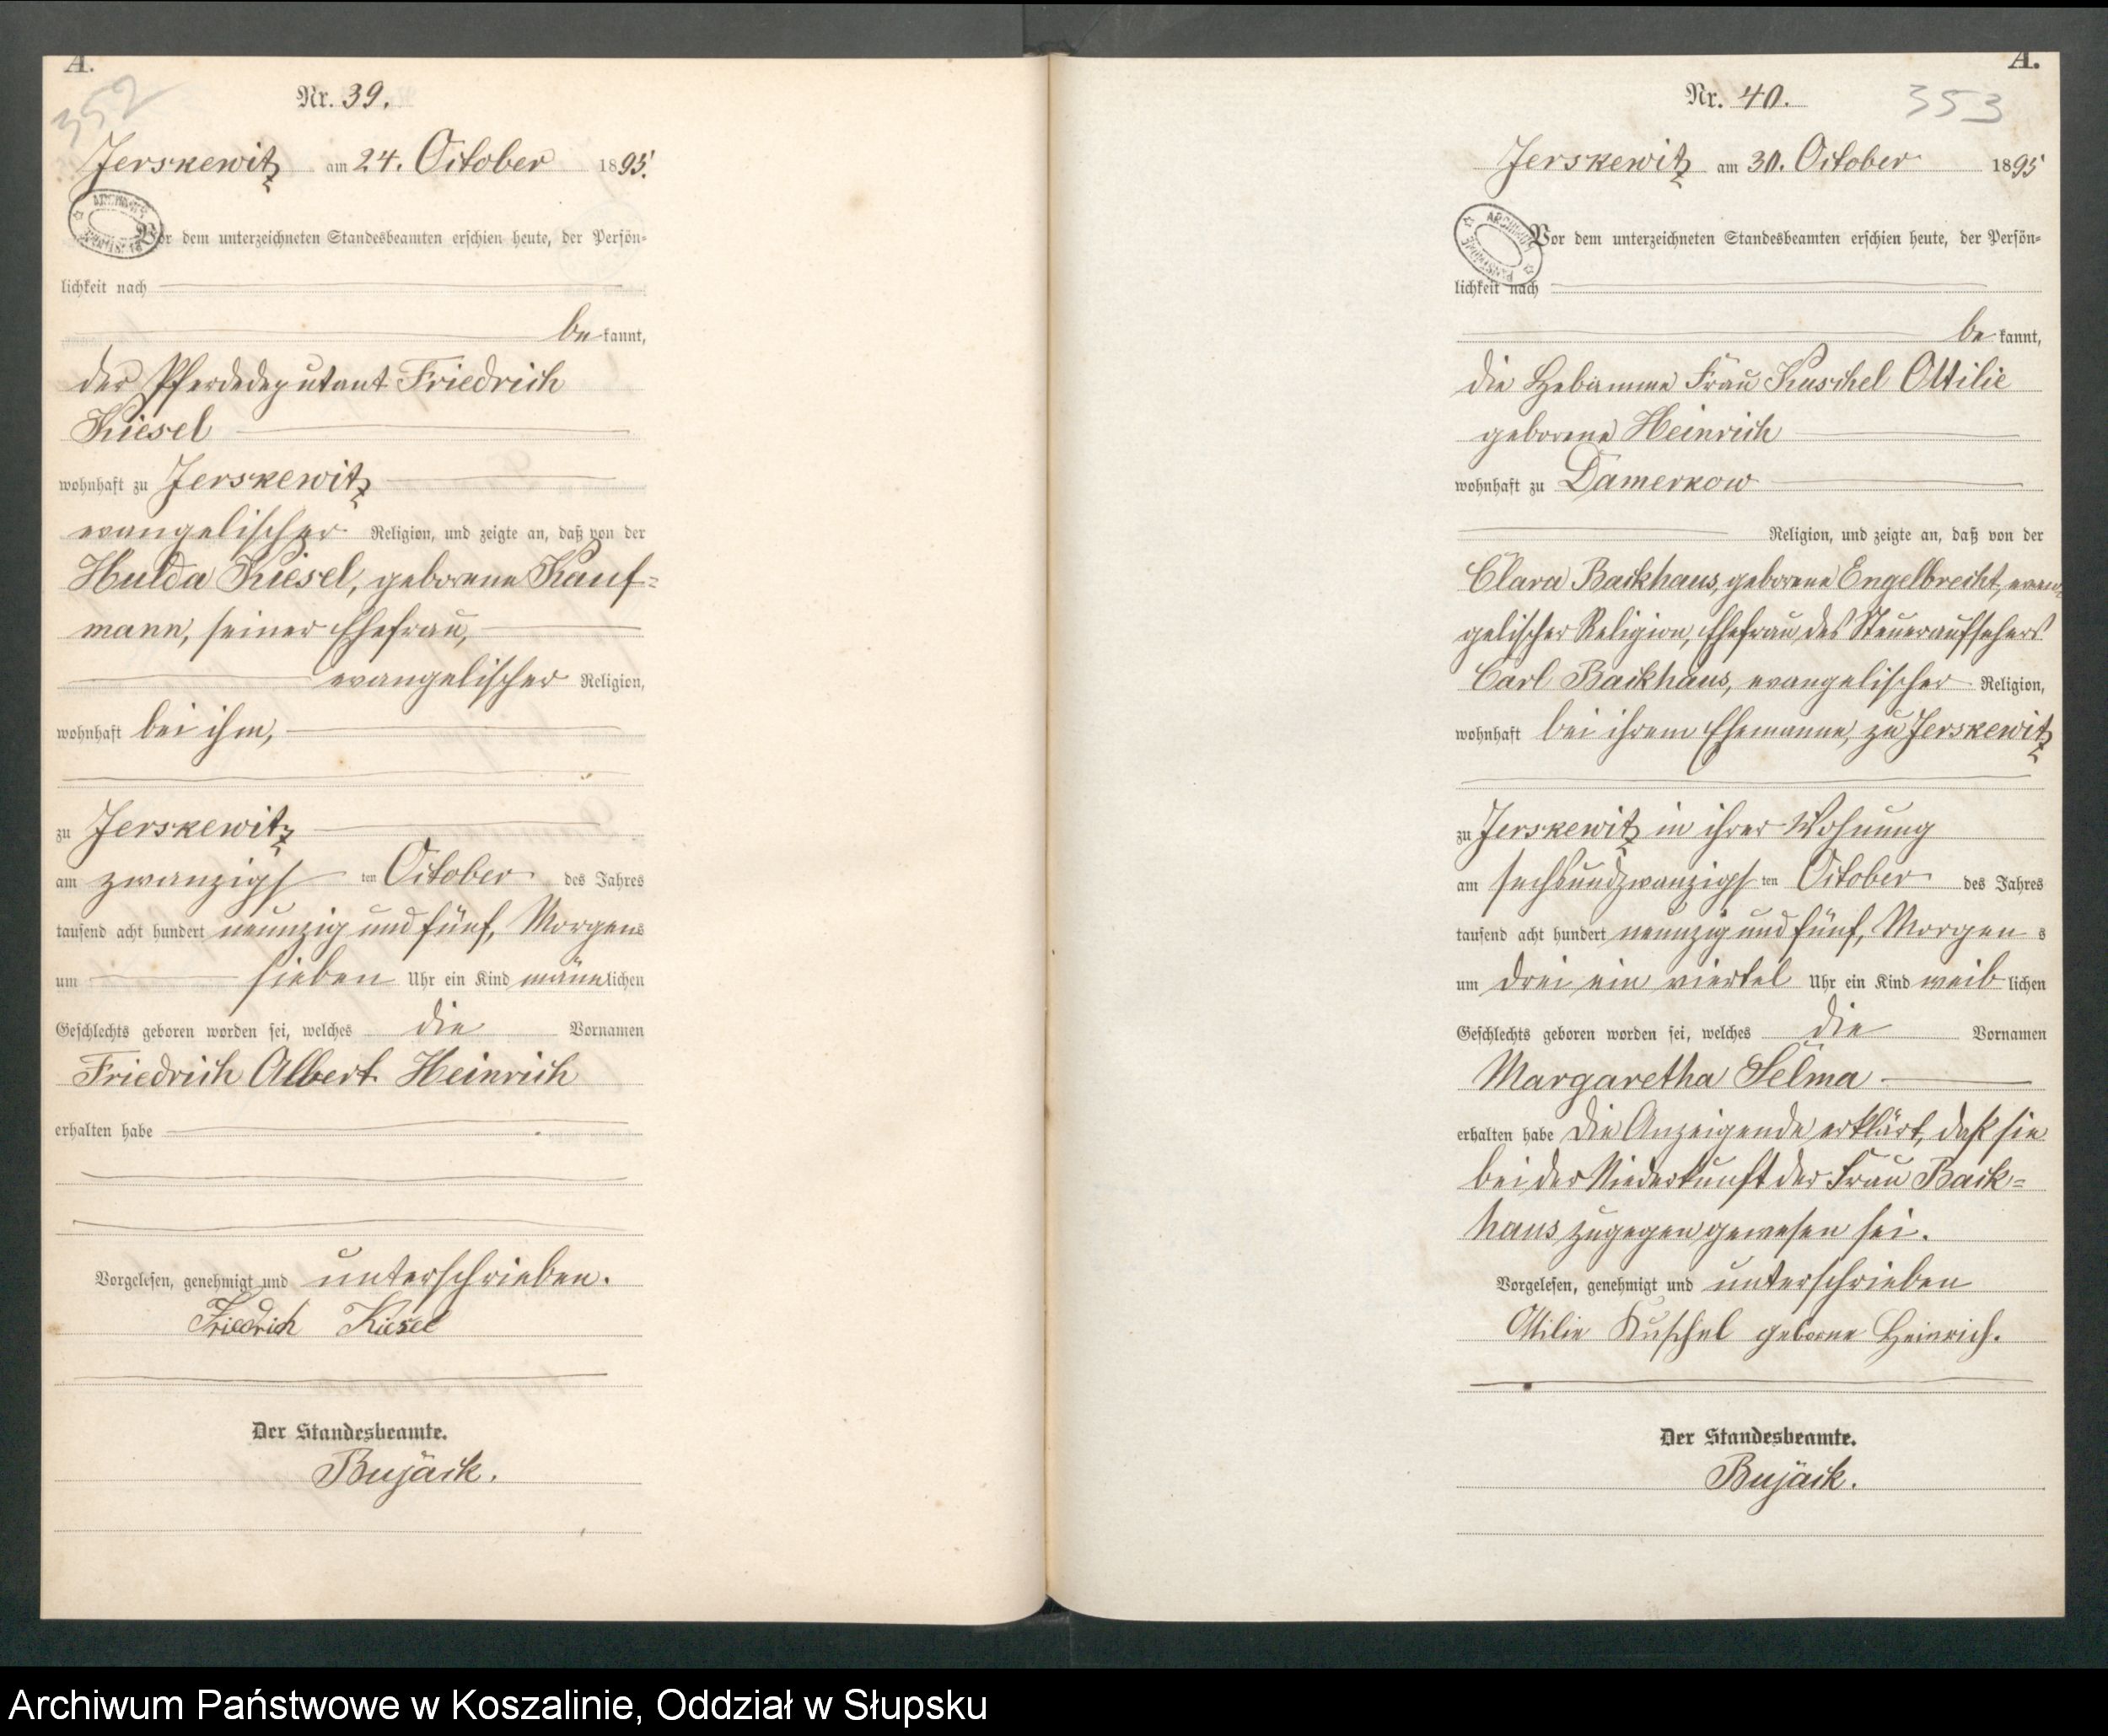 A.
352
Nr. 39.
Jerskewitz am 24. October 1895.
Vor dem unterzeichneten Standesbeamten erschien heute, der Persön=
lichkeit nach
be kannt,
der Pferdedeputant Friedrich
Kiesel
wohnhaft zu Jerskewitz
evangelischer Religion, und zeigte an, daß von der
Hulda Kiesel, geborene Kauf=
mann, seiner Ehefrau,
evangelischer Religion,
wohnhaft bei ihm,
zu Jerskewitz
am zwanzigs ten October des Jahres
tausend acht hundert neunzig und fünf, Morgens
um sieben Uhr ein Kind männlichen
Geschlechts geboren worden sei, welches die Vornamen
Friedrich Albert Heinrich
erhalten habe
Vorgelesen, genehmigt und unterschrieben.
Friedrich Kiesel
Der Standesbeamte.
Bujäck.
A.
353
Nr. 40.
Jerskewitz am 30. October 1895
Vor dem unterzeichneten Standesbeamten erschien heute, der Persön=
lichkeit nach
be kannt,
die Hebamme Frau Kuschel Ottilie
geborene Heinrich
wohnhaft zu Damerkow
Religion, und zeigte an, daß von der
Clara Backhaus, geborene Engelbrecht, evan=
gelischer Religion, Ehefrau des Steueraufsehers
Carl Backhaus, evangelischer Religion,
wohnhaft bei ihrem Ehemanne, zu Jerskewitz
zu Jerskewitz in ihrer Wohnung
am sechsundzwanzigs ten October des Jahres
tausend acht hundert neunzig und fünf, Morgen s
um drei ein viertel Uhr ein Kind weib lichen
Geschlechts geboren worden sei, welches die Vornamen
Margaretha Selma
erhalten habe Die Anzeigende erklärt, daß sie
bei der Niederkunft der Frau Back=
haus zugegen gewesen sei.
Vorgelesen, genehmigt und unterschrieben
Ottilie Kuschel geborne Heinrich.
Der Standesbeamte.
Bujäck.
Archiwum Państwowe w Koszalinie, Oddział w Słupsku